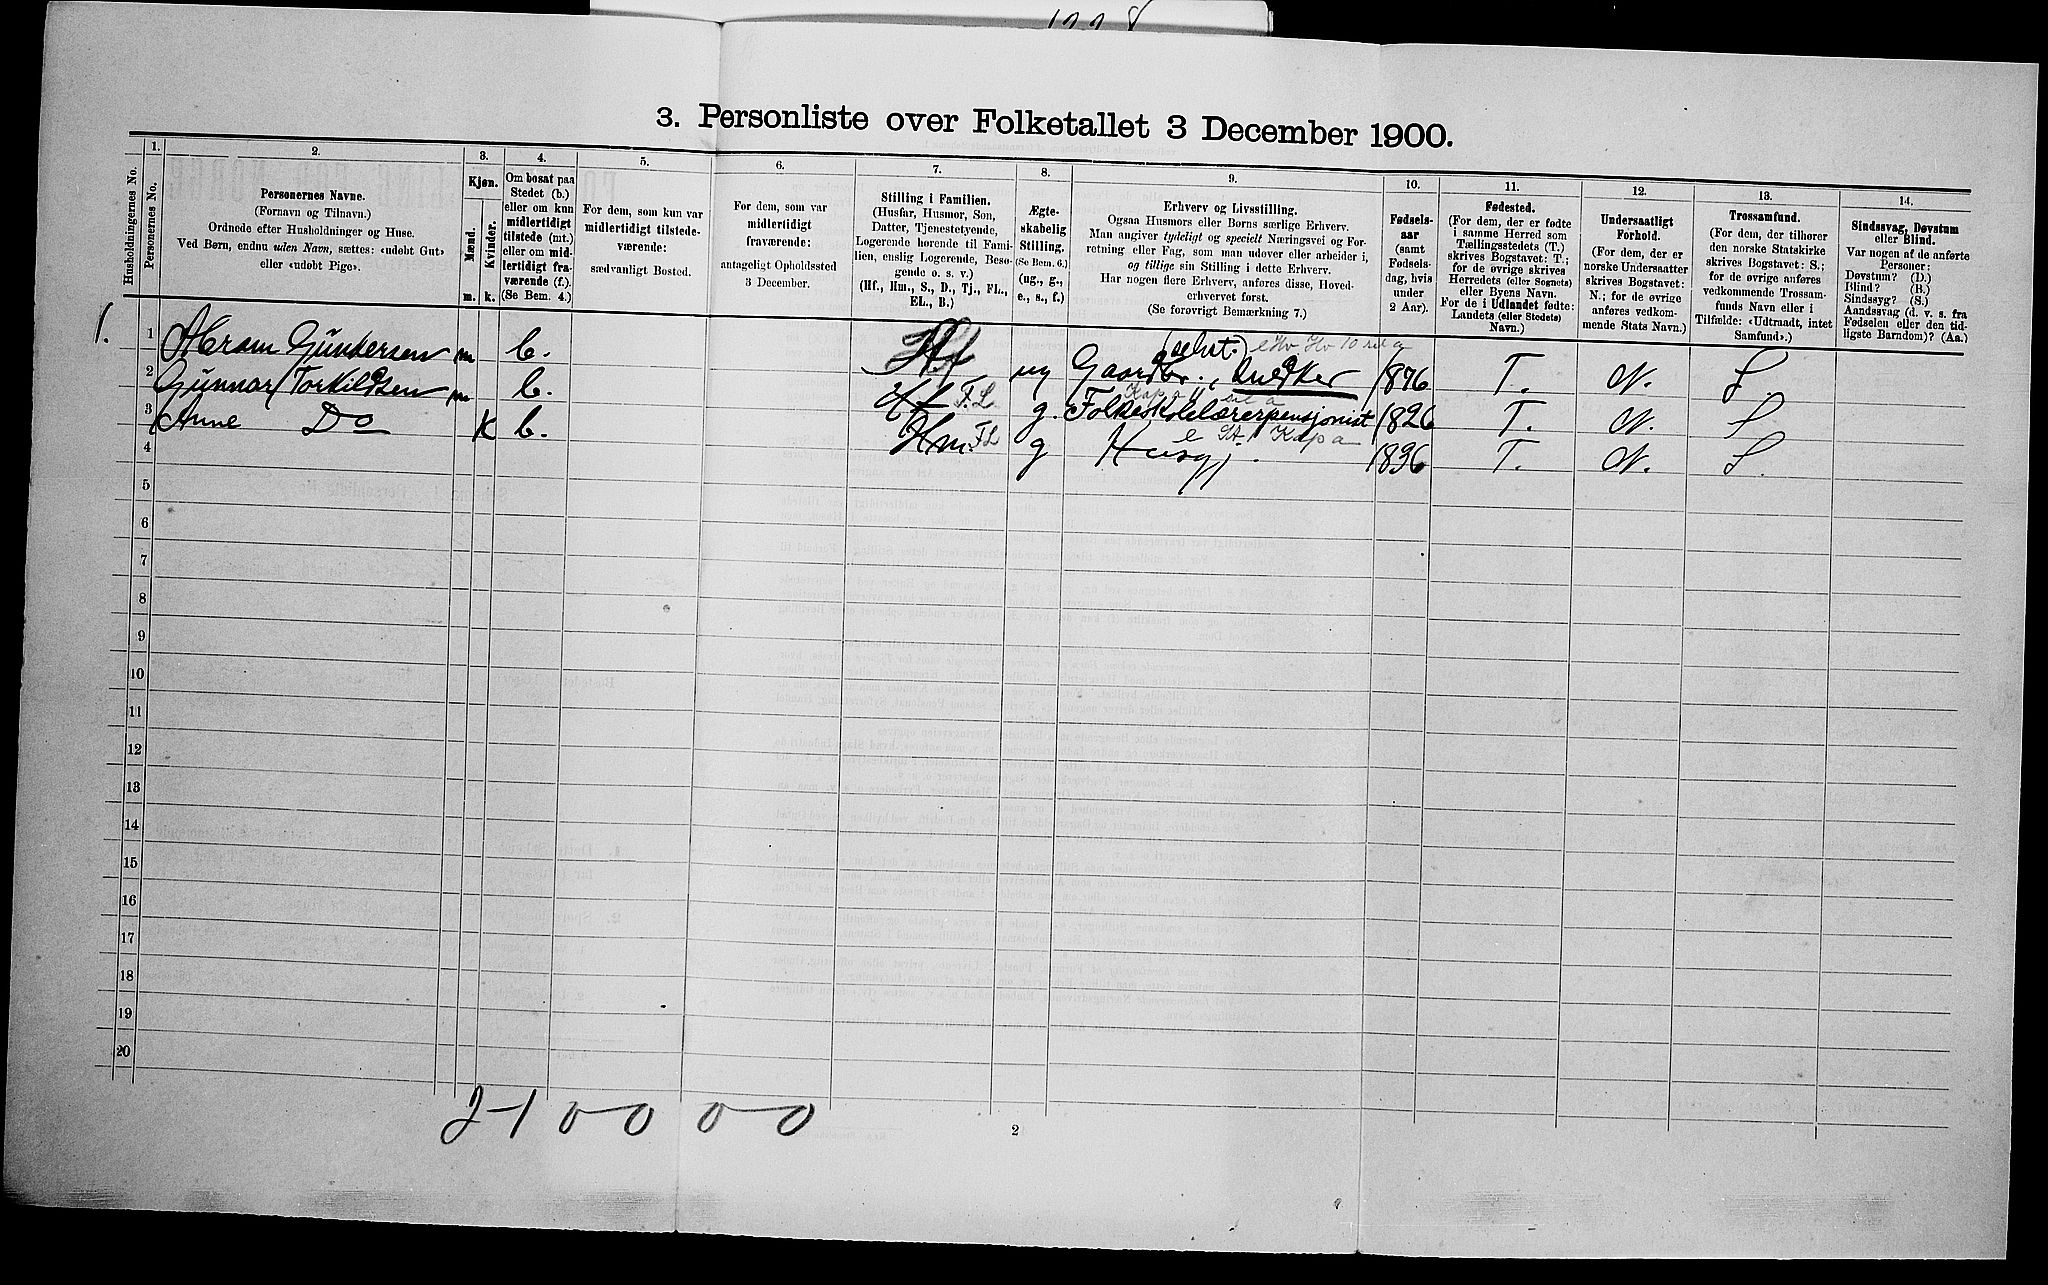 3. Personliste over Folketallet 3 December 1900.
1. 2. 3. 4. 5. 6. 7. 8. 9. 10. 11. 12. 13. 14.
Husholdningernes No.
Personernes No.
Personernes Navne.
(Fornavn og Tilnavn.)
Ordnede efter Husholdninger og Huse.
Ved Børn, endnu uden Navn, sættes: «udøbt Gut»
eller «udøbt Pige».
Kjøn.
Mænd.
Kvinder.
m. k.
Om bosat paa
Stedet (b.)
eller om kun
midlertidigt
tilstede (mt.)
eller om mid-
lertidigt fra-
værende (f.).
(Se Bem. 4.)
For dem, som kun var
midlertidigt tilstede-
værende:
sædvanligt Bosted.
For dem, som var
midlertidigt
fraværende:
antageligt Opholdssted
3 December.
Stilling i Familien.
(Husfar, Husmor, Søn,
Datter, Tjenestetyende,
Logerende hørende til Fami-
lien, enslig Logerende, Besø-
gende o. s. v.)
(Hf., Hm., S., D., Tj., FL.,
EL., B.)
Ægte-
skabelig
Stilling.
(Se Bem. 6.)
(ug., g.,
e., s., f.)
Erhverv og Livsstilling.
Ogsaa Husmors eller Børns særlige Erhverv.
Man angiver tydeligt og specielt Næringsvei og For-
retning eller Fag, som man udover eller arbeider i,
og tillige sin Stilling i dette Erhverv.
Har nogen flere Erhverv, anføres disse, Hoved-
erhvervet først.
(Se forøvrigt Bemærkning 7.)
Fødsels-
aar
(samt
Fødsels-
dag, hvis
under
2 Aar).
Fødested.
(For dem, der er fødte
i samme Herred som
Tællingsstedets (T.)
skrives Bogstavet: T.;
for de øvrige skrives
Herredets (eller Sognets)
eller Byens Navn.
For de i Udlandet fødte:
Landets (eller Stedets)
Navn.)
Undersaatligt
Forhold.
(For dem, der er
norske Undersaatter
skrives Bogstavet:
N.; for de øvrige
anføres vedkom-
mende Stats Navn.)
Trossamfund.
(For dem, der tilhører
den norske Statskirke
skrives Bogstavet: S.;
for de øvrige anføres
vedkommende Trossam-
funds Navn eller i
Tilfælde: «Udtraadt, intet
Samfund».)
Sindssvag, Døvstum
eller Blind.
Var nogen af de anførte
Personer:
Døvstum? (D.)
Blind? (B.)
Sindssyg? (S.)
Aandssvag (d. v. s. fra
Fødselen eller den tid-
ligste Barndom)? (Aa.)
1. 1 Abram Gundersen m b. Hf ug Gaardbr., (selvst.) Snedker 1876 T. N. S.
2 Gunnar Torkildsen m b. Hf F.L g. Folkeskolelærerpensjonist 1826 T. N. S
3 Anne Do K b. Hm. FL g Husgj. 1836 T. N. S.
4
5
6
7
8
9
10
11
12
13
14
15
16
17
18
19
20
2-1 0 0 0 0
2